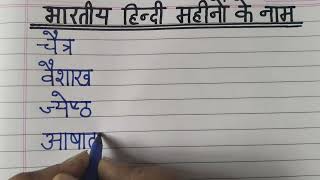 भारतीय हिन्दी महीनों के नाम
चैत्र
वैशाख
ज्येष्ठ
आषाढ